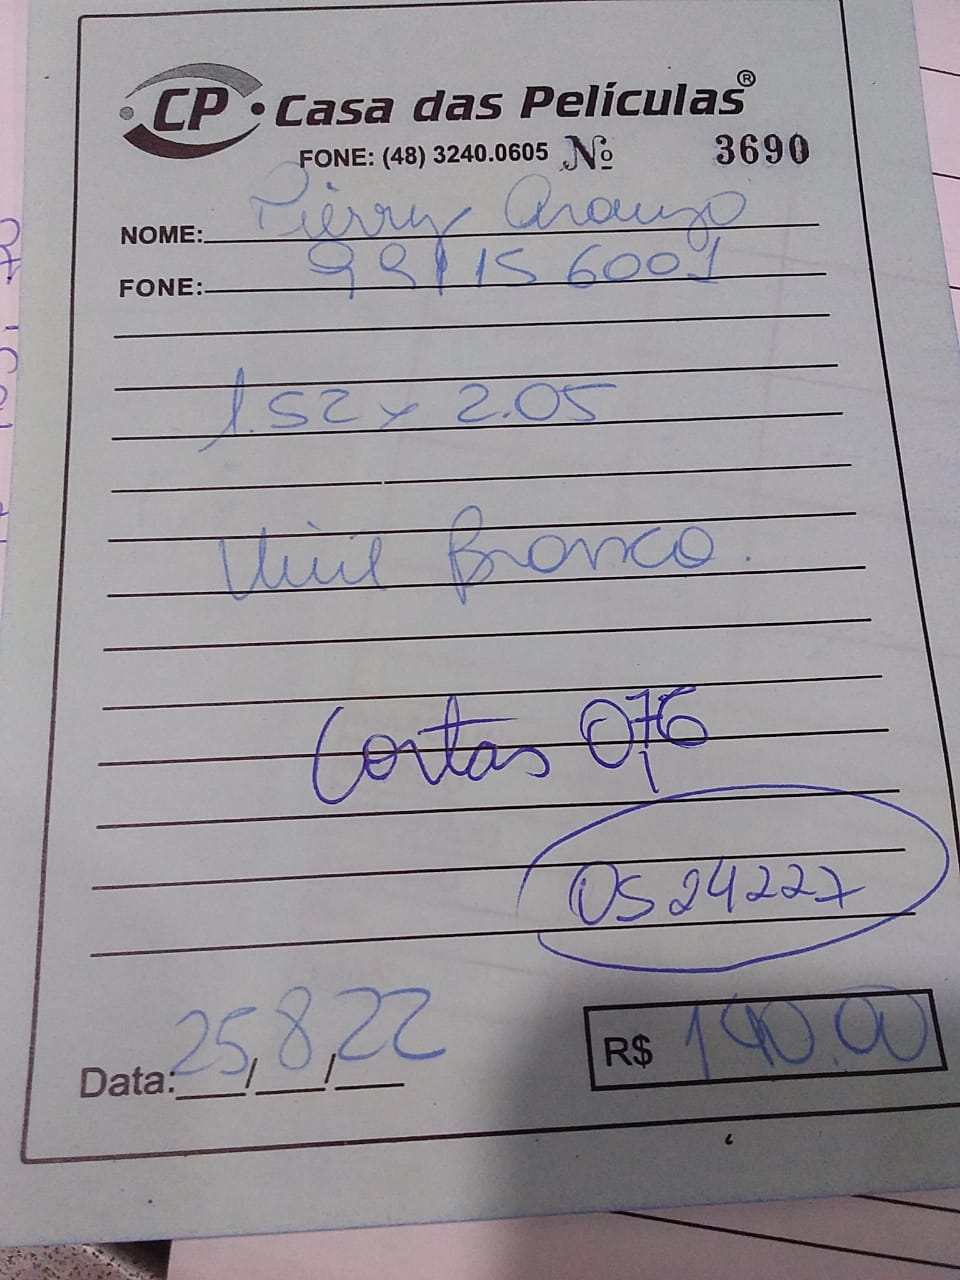 CP Casa das Películas®
FONE: (48) 3240.0605 Nº 3690
NOME: Pierry Araujo
FONE: 99115 6001
1.52 x 2.05
Vinil Branco.
Cortas 0,76
OS 24227
Data: 25/8/22
R$ 140.00